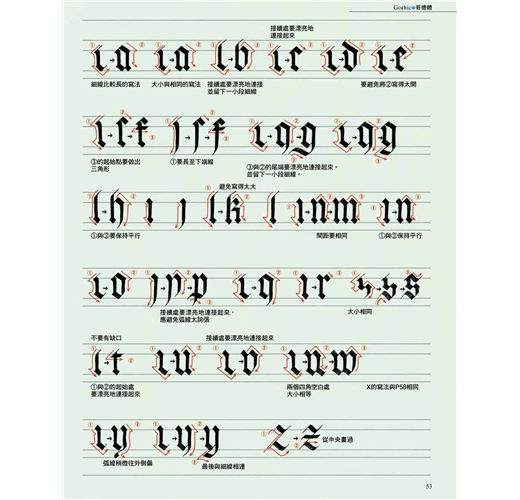 Gothic●哥德體
接續處要漂亮地
連接起來
ı→a ı→a l→b ı→c ı→d ı→e
細線比較長的寫法 大小與相同的寫法 接續處要漂亮地連接
並留下一小段細線 要避免將②寫得太開
ı→f→f ȷ→f→f ı→g→g ı→g→g
③的起始點要做出
三角形 ①要長至下端線 ③與②的尾端要漂亮地連接起來。
並留下一小段細線。
避免寫得太大
l→h ı ȷ l→k l ı→n→m ı→n
①與②要保持平行 間距要相同 ①與②保持平行
ı→o ȷ→p→p ı→q ı→r s→s→s
接續處要漂亮地連接起來,
應避免弧線太誇張 大小相同
不要有缺口 接續處要漂亮地連接起來
l→t ı→u ı→v ı→u→w
①與②的起始處
要漂亮地連接起來 兩個四角空白處
大小相等 X的寫法與P58相同
ı→y ı→y→y z→z 從中央畫過
弧線稍微往外側偏 最後與細線相連
53